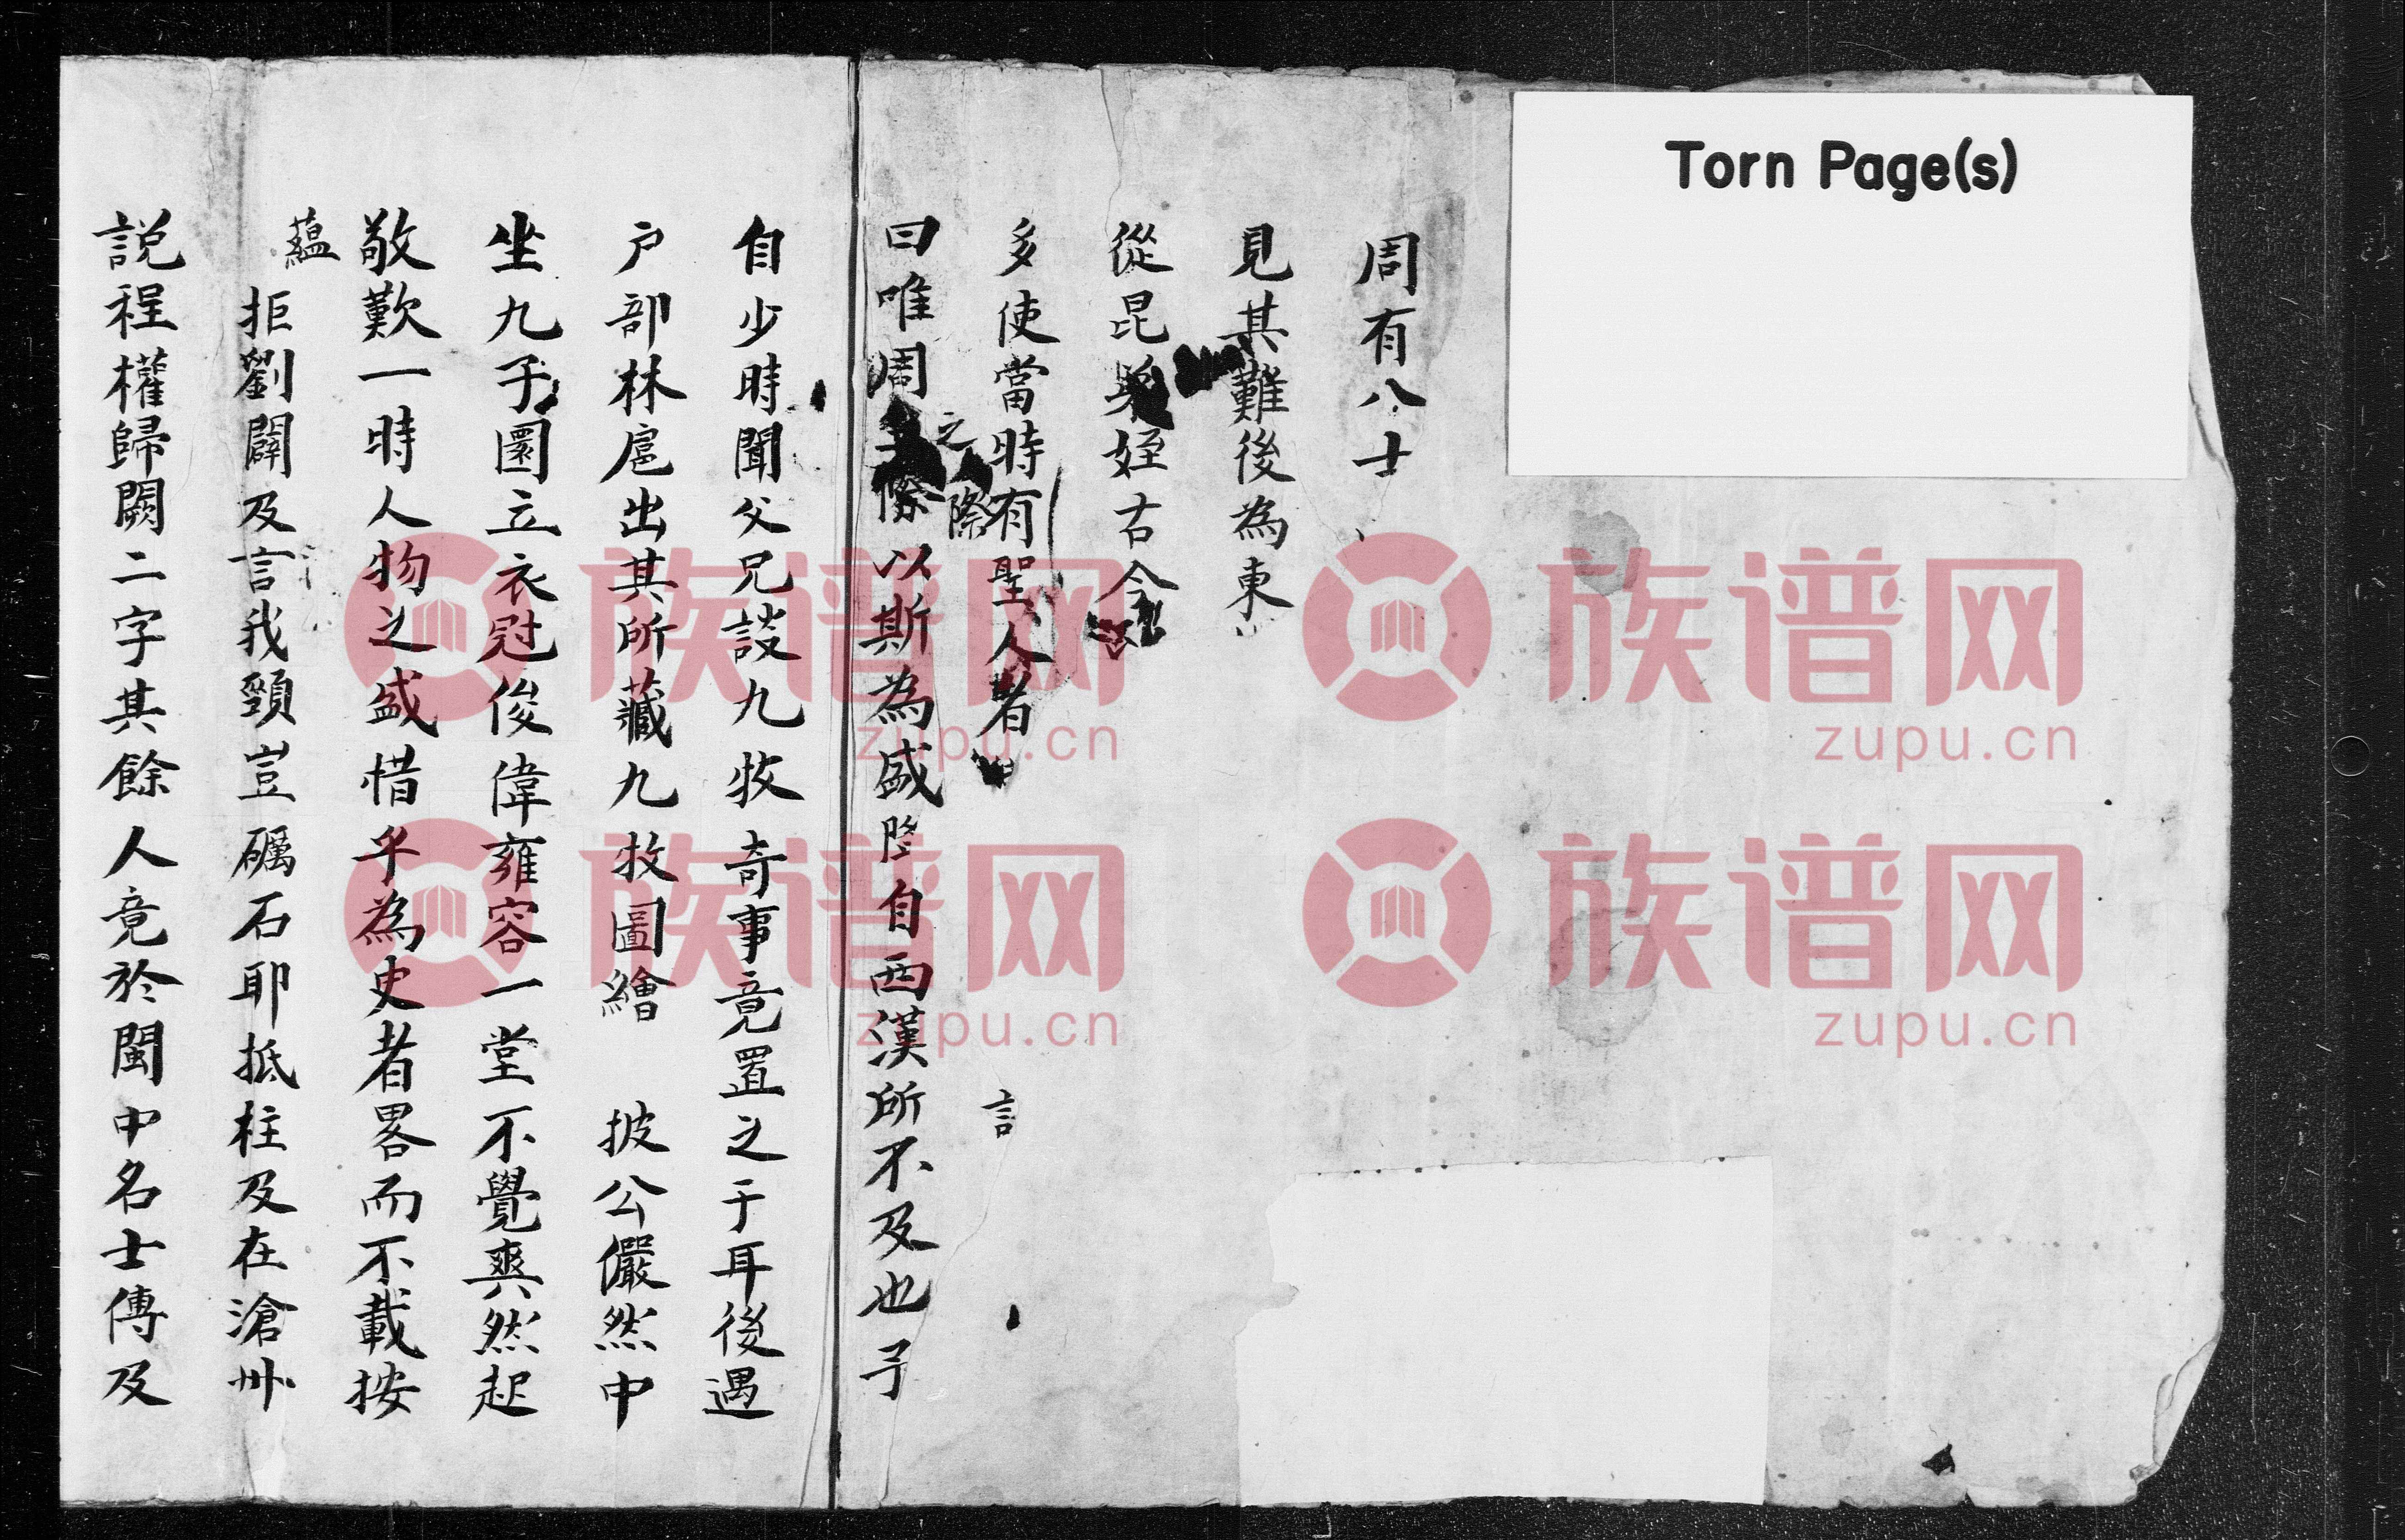 Torn Page(s)
周有八士
見其難後為東
從昆弟姪古今
多使當時有聖人者 言
之際
曰唯周之際以斯為盛隆自西漢所不及也予
自少時聞父兄談九牧奇事竟置之于耳後遇
户部林扈出其所藏九牧圖繪 披公儼然中
坐九子園立衣冠俊偉雍容一堂不覺爽然起
敬歎一時人物之盛惜乎為史者畧而不載按
蘊
拒劉闢及言我頸豈礪石耶抵柱及在滄州
説程權歸闕二字其餘人竟於閩中名士傳及
族谱网
zupu.cn
族谱网
zupu.cn
族谱网
zupu.cn
族谱网
zupu.cn